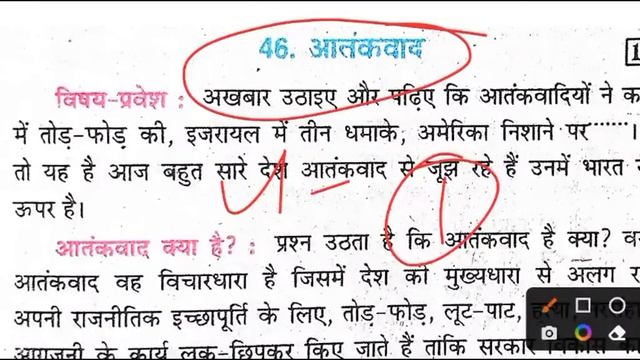 46. आतंकवाद
विषय-प्रवेश : अखबार उठाइए और पढ़िए कि आतंकवादियों ने क
में तोड़-फोड़ की, इजरायल में तीन धमाके, अमेरिका निशाने पर .......।
तो यह है आज बहुत सारे देश आतंकवाद से जूझ रहे हैं उनमें भारत
ऊपर है।
आतंकवाद क्या है? : प्रश्न उठता है कि आतंकवाद है क्या?
आतंकवाद वह विचारधारा है जिसमें देश की मुख्यधारा से अलग
अपनी राजनीतिक इच्छापूर्ति के लिए, तोड़-फोड़, लूट-पाट,
आगजनी के कार्य लुक-छिपकर किए जाते हैं ताकि सरकार